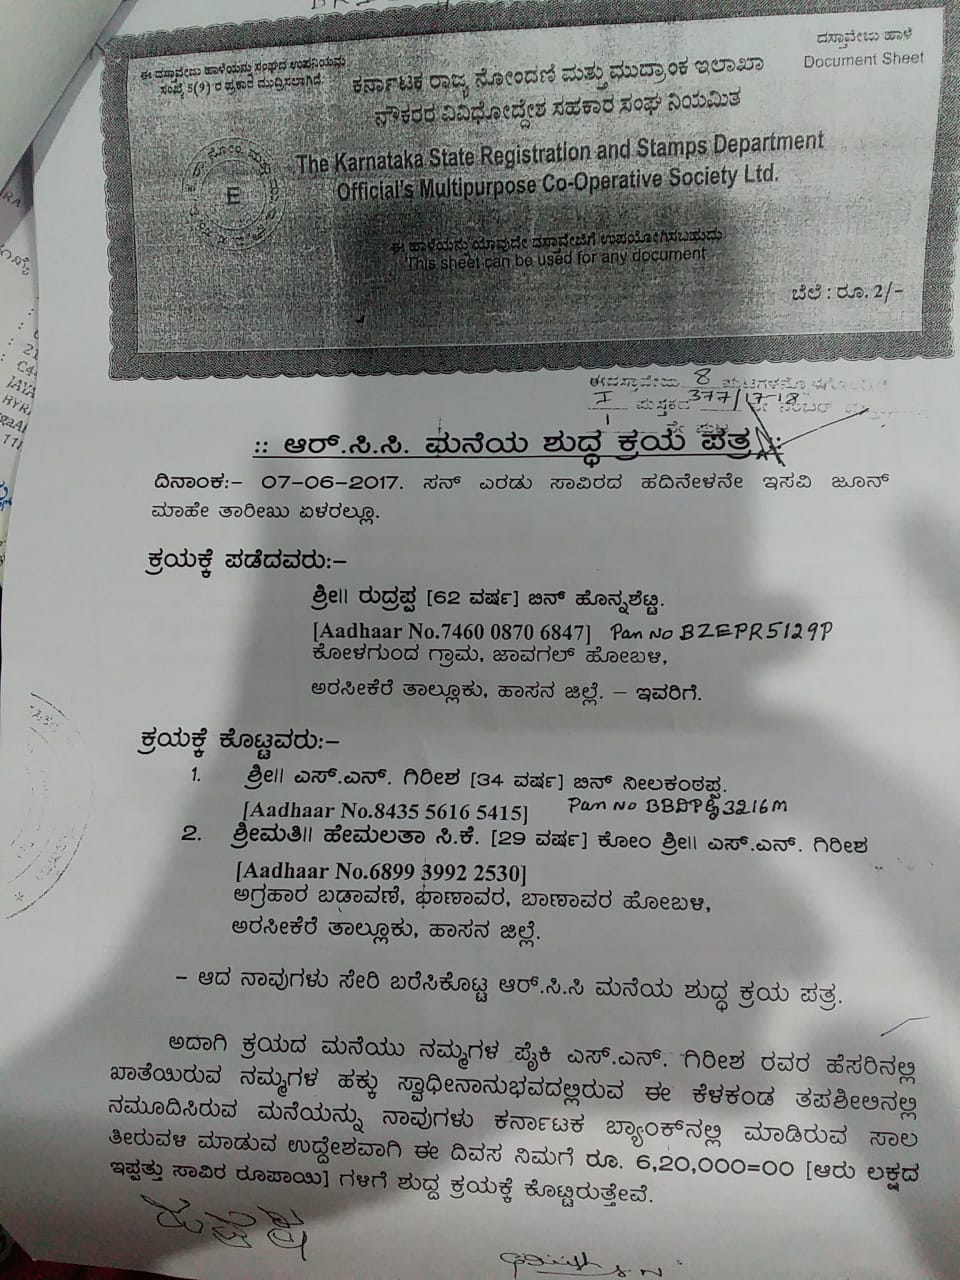 ದಸ್ತಾವೇಜು ಹಾಳೆ
Document Sheet
ಈ ದಸ್ತಾವೇಜು ಹಾಳೆಯನ್ನು ಸಂಘದ ಉಪನಿಯಮ
ಸಂಖ್ಯೆ 5(9) ರ ಪ್ರಕಾರ ಮುದ್ರಿಸಲಾಗಿದೆ.
ಕರ್ನಾಟಕ ರಾಜ್ಯ ನೋಂದಣಿ ಮತ್ತು ಮುದ್ರಾಂಕ ಇಲಾಖಾ
ನೌಕರರ ವಿವಿಧೋದ್ದೇಶ ಸಹಕಾರ ಸಂಘ ನಿಯಮಿತ
The Karnataka State Registration and Stamps Department
Official's Multipurpose Co-Operative Society Ltd.
E
ಈ ಹಾಳೆಯನ್ನು ಯಾವುದೇ ದಸ್ತಾವೇಜಿಗೆ ಉಪಯೋಗಿಸಬಹುದು
This sheet can be used for any document
ಬೆಲೆ : ರೂ. 2/-
ಈ ದಸ್ತಾವೇಜು 8 ಪುಟಗಳನ್ನು
I ಪುಸ್ತಕದ 377/17-18 ನೇ ನಂಬರ್
ನೇ ಪುಟ
:: ಆರ್.ಸಿ.ಸಿ. ಮನೆಯ ಶುದ್ಧ ಕ್ರಯ ಪತ್ರ ::
ದಿನಾಂಕ:- 07-06-2017. ಸನ್ ಎರಡು ಸಾವಿರದ ಹದಿನೇಳನೇ ಇಸವಿ ಜೂನ್
ಮಾಹೇ ತಾರೀಖು ಏಳರಲ್ಲೂ.
ಕ್ರಯಕ್ಕೆ ಪಡೆದವರು:-
ಶ್ರೀ|| ರುದ್ರಪ್ಪ [62 ವರ್ಷ] ಬಿನ್ ಹೊನ್ನಶೆಟ್ಟಿ.
[Aadhaar No.7460 0870 6847] Pan No BZEPR5129P
ಕೋಳಗುಂದ ಗ್ರಾಮ, ಜಾವಗಲ್ ಹೋಬಳಿ,
ಅರಸೀಕೆರೆ ತಾಲ್ಲೂಕು, ಹಾಸನ ಜಿಲ್ಲೆ. – ಇವರಿಗೆ.
ಕ್ರಯಕ್ಕೆ ಕೊಟ್ಟವರು:-
1. ಶ್ರೀ|| ಎಸ್.ಎನ್. ಗಿರೀಶ [34 ವರ್ಷ] ಬಿನ್ ನೀಲಕಂಠಪ್ಪ.
[Aadhaar No.8435 5616 5415] Pan No
2. ಶ್ರೀಮತಿ|| ಹೇಮಲತಾ ಸಿ.ಕೆ. [29 ವರ್ಷ] ಕೋಂ ಶ್ರೀ|| ಎಸ್.ಎನ್. ಗಿರೀಶ
[Aadhaar No.6899 3992 2530]
ಅಗ್ರಹಾರ ಬಡಾವಣೆ, ಭಾಣಾವರ, ಬಾಣಾವರ ಹೋಬಳಿ,
ಅರಸೀಕೆರೆ ತಾಲ್ಲೂಕು, ಹಾಸನ ಜಿಲ್ಲೆ.
– ಆದ ನಾವುಗಳು ಸೇರಿ ಬರೆಸಿಕೊಟ್ಟ ಆರ್.ಸಿ.ಸಿ ಮನೆಯ ಶುದ್ಧ ಕ್ರಯ ಪತ್ರ.
ಅದಾಗಿ ಕ್ರಯದ ಮನೆಯು ನಮ್ಮಗಳ ಪೈಕಿ ಎಸ್.ಎನ್. ಗಿರೀಶ ರವರ ಹೆಸರಿನಲ್ಲಿ
ಖಾತೆಯಿರುವ ನಮ್ಮಗಳ ಹಕ್ಕು ಸ್ವಾಧೀನಾನುಭವದಲ್ಲಿರುವ ಈ ಕೆಳಕಂಡ ತಪಶೀಲಿನಲ್ಲಿ
ನಮೂದಿಸಿರುವ ಮನೆಯನ್ನು ನಾವುಗಳು ಕರ್ನಾಟಕ ಬ್ಯಾಂಕ್‌ನಲ್ಲಿ ಮಾಡಿರುವ ಸಾಲ
ತೀರುವಳಿ ಮಾಡುವ ಉದ್ದೇಶವಾಗಿ ಈ ದಿವಸ ನಿಮಗೆ ರೂ. 6,20,000=00 [ಆರು ಲಕ್ಷದ
ಇಪ್ಪತ್ತು ಸಾವಿರ ರೂಪಾಯಿ] ಗಳಿಗೆ ಶುದ್ದ ಕ್ರಯಕ್ಕೆ ಕೊಟ್ಟಿರುತ್ತೇವೆ.